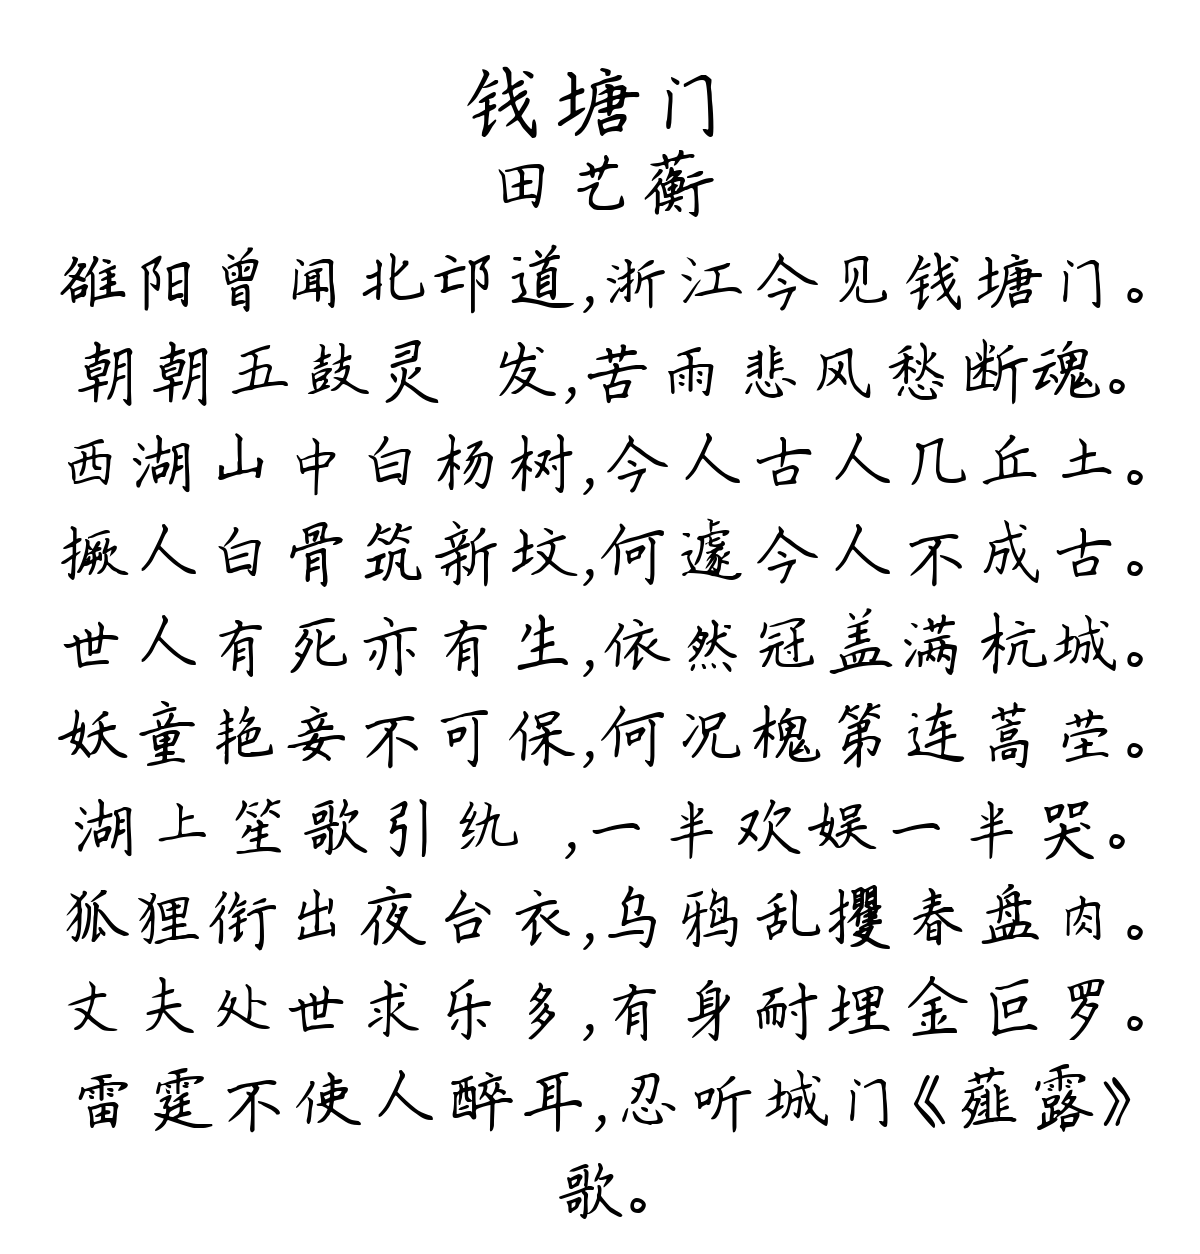 钱塘门
田艺蘅
雒阳曾闻北邙道,浙江今见钱塘门。
朝朝五鼓灵 发,苦雨悲风愁断魂。
西湖山中白杨树,今人古人几丘土。
撅人白骨筑新坟,何遽今人不成古。
世人有死亦有生,依然冠盖满杭城。
妖童艳妾不可保,何况槐第连蒿茔。
湖上笙歌引纨 ,一半欢娱一半哭。
狐狸衔出夜台衣,乌鸦乱攫春盘肉。
丈夫处世求乐多,有身耐埋金叵罗。
雷霆不使人醉耳,忍听城门《薤露》
歌。